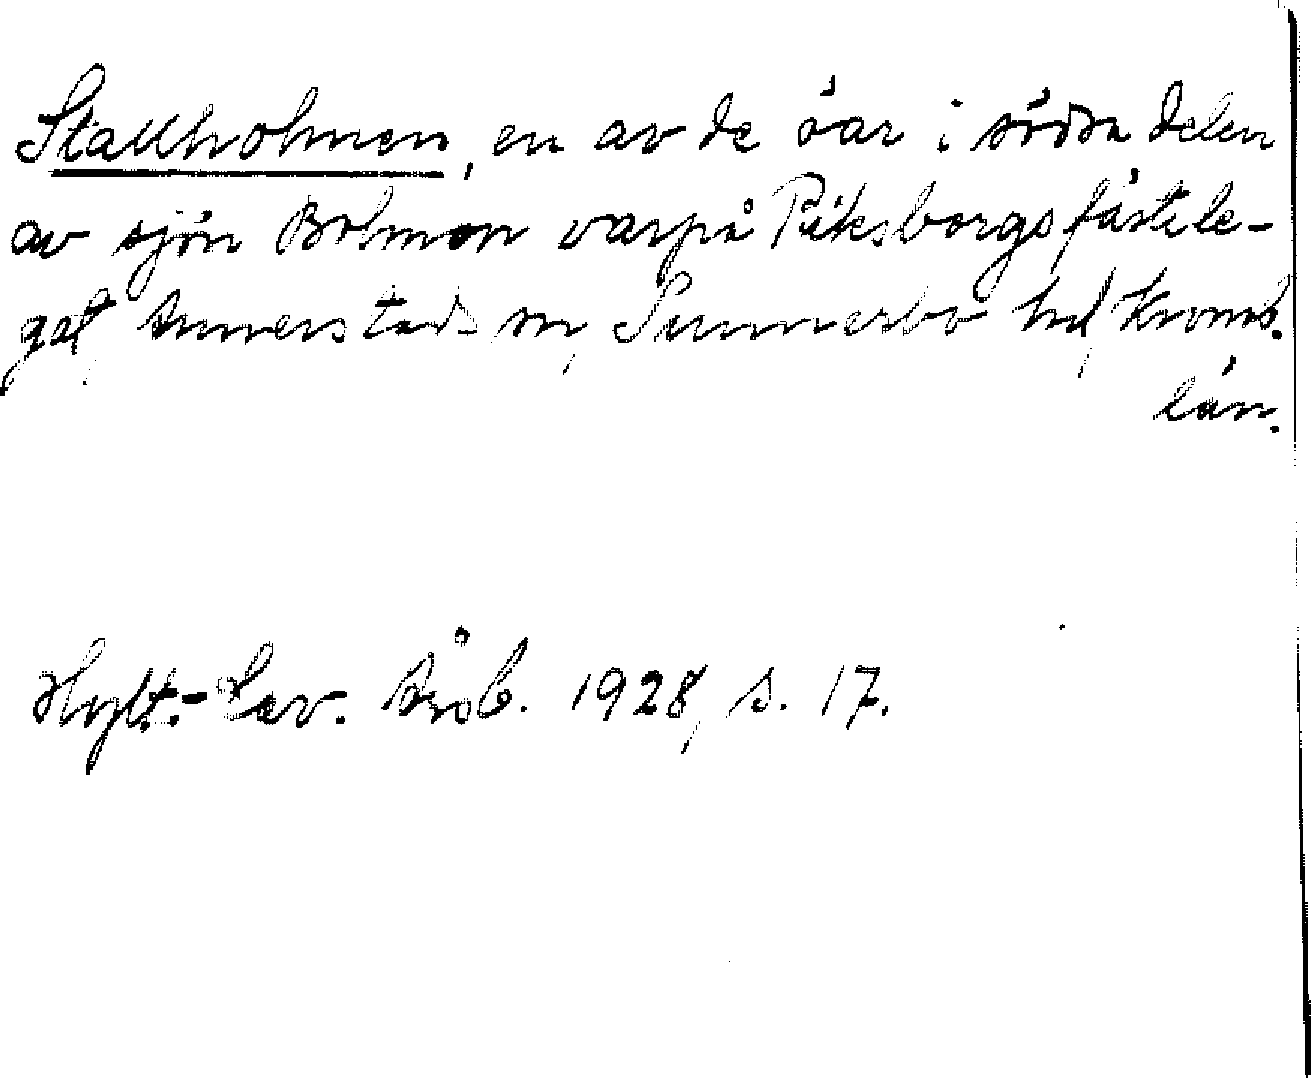 Stallholmen, en av de öar i södra delen
av sjön Bolmen varpå Piksborgs fäste le-
gat, Annerstads sn, Sunnerbo hd, Kronob.
län.
Hylt.-Cav. Årsb. 1928, s. 17.